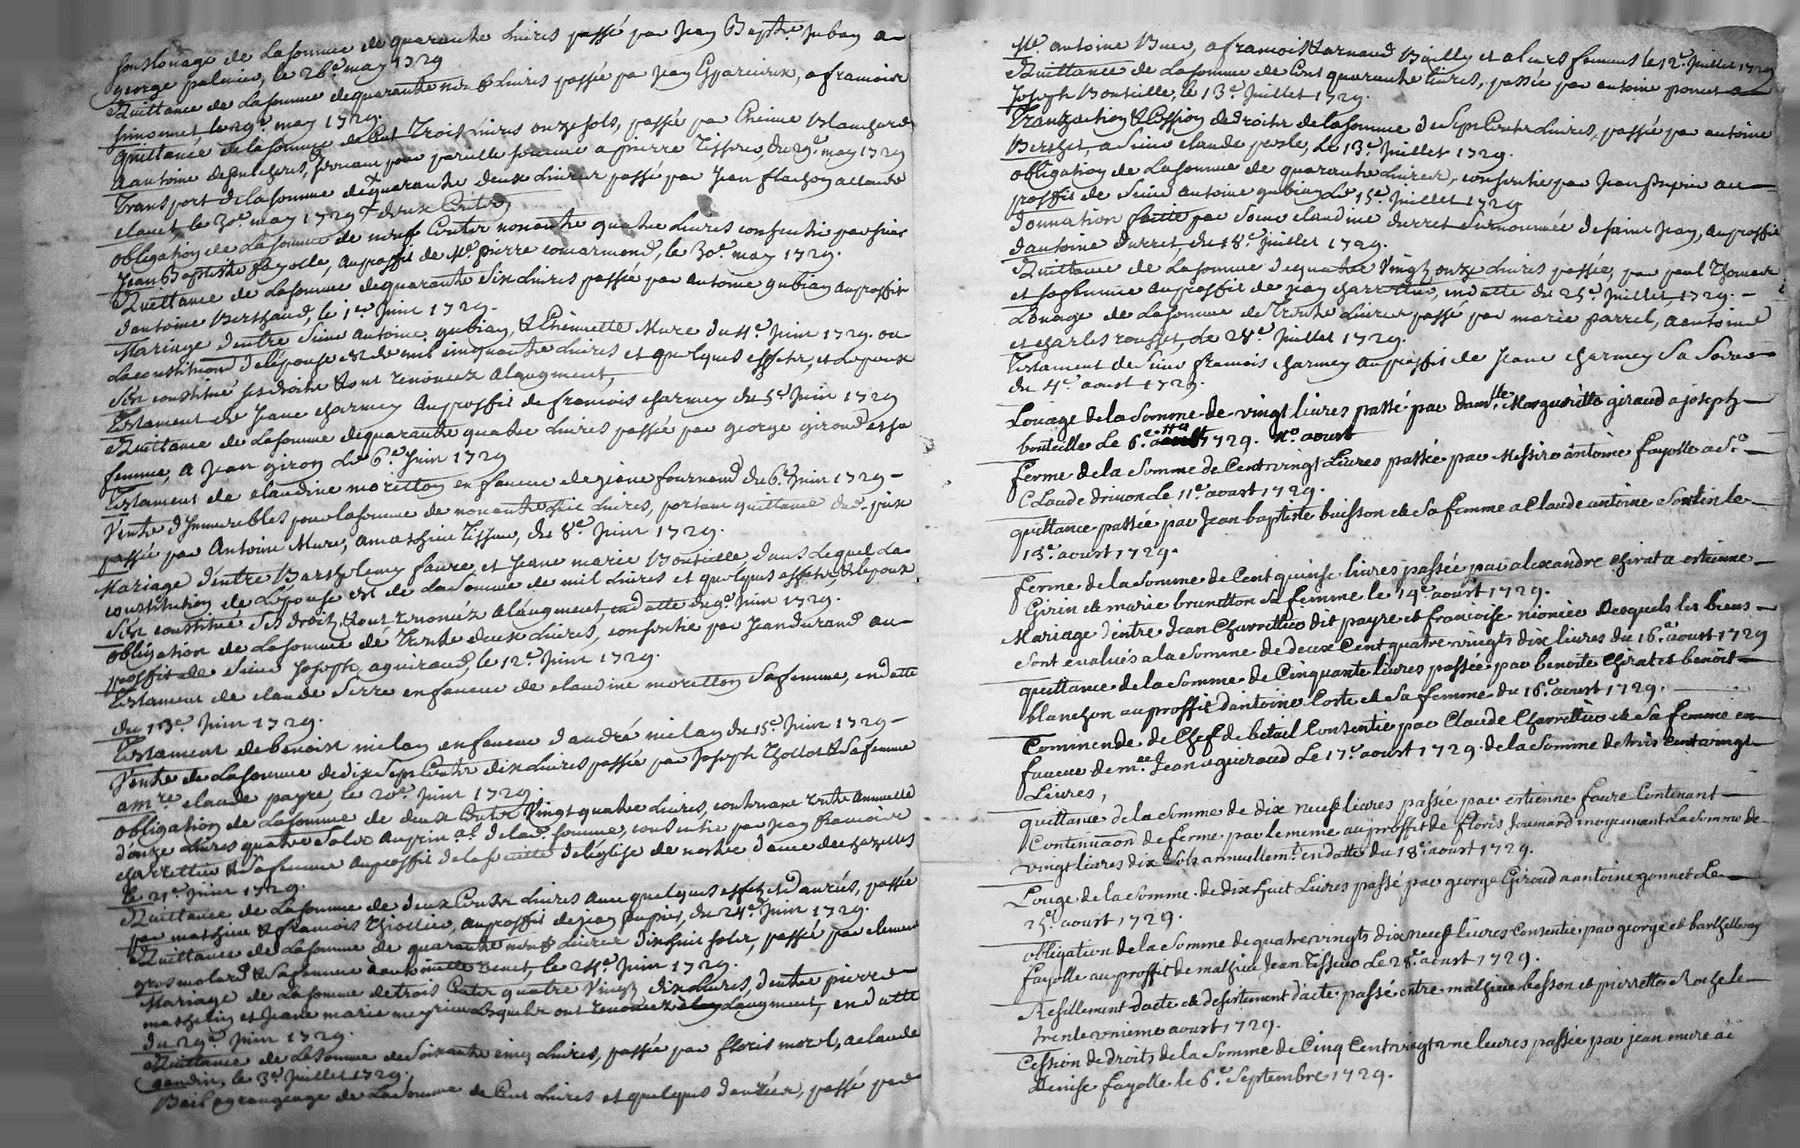 soushouage de Lasomme de quarante Livres passé par Jean Bapt.te Juban a
george palmier, le 28.e may 1729
Quittance de Lasomme de quarante neuf Livres passée par Jean, a francois
le 29.e may 1729.
quittance de la somme de Cent Trois Livres onze sols, passée par Etienne Blanchard
a antoine, pour pareille somme a pierre Tisseur, du 29.e may 1729
Transport de la somme de quarante deux Livres passé par Jean flachon a claude
le 30.e may 1729 deux Cents
obligation de La somme de neuf Cents nonante quatre Livres consentie par sieur
Jean Baptiste fayolle, au proffit de M.e pierre comarmond, le 30.e may 1729.
Quittance de La somme de quarante six Livres passée par antoine gubian au proffit
d'antoine Berthaud, le 1.er Juin 1729.
Mariage d'entre Sieur antoine gubian, & Etiennette Mure du 4.e Juin 1729. ou
La constitution de l'épouse est de mil cinquante Livres et quelques effets, et L'epoux
s'est constitué ses droits & ont renoncez a laugment,
Testament de Jeane charmey au proffit de francois charmey du 5.e Juin 1729
Quittance de La somme de quarante quatre Livres passée par george giroud et sa
femme, a Jean giron Le 6.e Juin 1729
Testament de claudine moretton en faveur de Jeane fournand du 6.e Juin 1729 -
Vente d'Immeubles pour La somme de nonante Livres, portant quittance du d. prix
passée par Antoine Mure, a mathieu Tisseur, du 8.e Juin 1729.
Mariage d'entre Barthelemy faure, et Jeane marie Bouteille dans Lequel La
constitution de L'epouse est de La somme de mil Livres et quelques effets & L'epoux
s'est constitué ses droits, & ont renoncéz a laugment, en datte du 9.e Juin 1729.
obligation de La somme de Trente deux Livres, consentie par Jean durand au
proffit de Sieur Joseph aguiraud, le 12.e Juin 1729.
Testament de claude Serre en faveur de claudine moretton sa femme, en datte
du 13.e Juin 1729.
Testament de benoist milan en faveur d'andré milan du 15.e Juin 1729 -
Vente de La somme de dix sept Cents dix Livres passée par Joseph Thollot & sa femme
a m.re claude payre, le 20.e Juin 1729.
obligation de La somme de deux Cents Vingt quatre Livres, contenant rente annuelle
d'onze Livres quatre sols au prin.al de la d. somme, consentie par Jean francois
charrettier & sa femme au proffit de la de l'église de nostre dame de chazelles
le 21.e Juin 1729.
Quittance de La somme de deux Cents Livres avec quelques effets et danrées, passée
par mathieu & francois Thiollier, au proffit de Jean dupuy, du 24.e Juin 1729.
Quittance de La somme de quarante neuf Livres dix huit sols, passée par clement
grosmolard & sa femme a antoinette Venet, le 24.e Juin 1729.
Mariage de La somme de trois Cents quatre Vingt dix Livres, d'entre pierre
mathelin et Jeane marie meyrieu Lesquels ont renoncez a laugment, en datte
du 29.e Juin 1729
Quittance de La somme de soixante cinq Livres, passée par floris morel, a claude
gandin, le 3.e Juillet 1729.
Bail a grangeage de La somme de Cent Livres et quelques danrées, passé par
M.e antoine Buer, a francois & arnaud Bailly et a leurs femmes le 12.e Juillet 1729
Quittance de La somme de Cent quarante Livres, passée par antoine poncet a
Joseph Bouteille, le 13.e Juillet 1729.
Tranzaction & Cession de droits de la somme de Sept Cents Livres, passée par antoine
Berthet, a Sieur claude perle, Le 13.e Juillet 1729.
obligation de La somme de quarante Livres, consentie par Jean dupin au
proffit de Sieur Antoine gubian Le 15.e Juillet 1729
donnation faitte par Soeur claudine durret surnommée de saint Jean, au proffit
d'antoine durret, du 18.e Juillet 1729.
Quittance de La somme de quatre Vingt onze Livres passée, par paul Thomas
et sa femme au proffit de Jean charrettier, en datte du 25.e Juillet 1729. -
Louage de La somme de Trente Livres passé par marie parrel, a antoine
et charles rousset, Le 28.e Juillet 1729.
Testament de Sieur francois charmey au proffit de Jeane charmey Sa Soeur
du 4.e aoust 1729.
Louage de la Somme de vingt livres passé par dam.lle Margueritte giraud a joseph
bouteille Le 6.e aoust 1729. aoust
ferme de la Somme de Cent vingt Livres passée par Messire antoine fayolle a S.r
Claude drivon Le 11.e aoust 1729.
quittance passée par Jean baptiste buisson et Sa femme a Claude antoine Le
13.e aoust 1729.
ferme de la Somme de Cent quinse livres passée par alexandre Chirat a estienne
Girin et marie brunetton Sa femme le 14.e aoust 1729.
Mariage d'entre Jean Charrettier dit payre et francoise nioncée Desquels les biens
sont evalués a la Somme de deux Cent quatre vingts dix livres du 16.e aoust 1729
quittance de la Somme de Cinquante livres passée par benoite Chirat et benoit
blanchon au proffit d'antoine Corte et Sa femme du 16.e aoust 1729.
Commende de Chef de betail Consentie par Claude Charrettier et Sa femme en
faveur de m.re Jean aguiraud Le 17.e aoust 1729. de la Somme de trois Cent vingt
Livres,
quittance de la Somme de dix neuf livres passée par estienne faure Contenant
Continuaon de ferme par le meme au proffit de floris Joumard moyennant La Somme de
vingt livres dix sols annuellem.t en datte du 18.e aoust 1729.
Louge de la Somme de dix huit Livres passé par george Giroud a antoine gonnet Le
25.e aoust 1729.
obligation de la Somme de quatre vingts dix neuf livres Consentie par george et barthellemy
fayolle au proffit de mathieu Jean Tisseur Le 28.e aoust 1729.
Resillement d'acte et desistement d'acte passé entre mathieu besson et pierrette Le
trente unieme aoust 1729.
Cession de droits de la Somme de Cinq Cent vingt une livres passée par jean mure a
Denise fayolle le 6.e Septembre 1729.